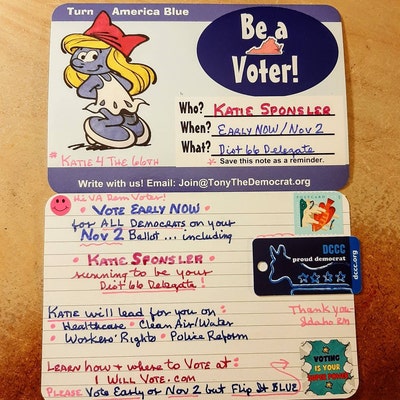 Turn America Blue
Be a
Voter!
Who? KATIE SPONSLER
When? EARLY NOW / NOV 2
What? Dist 66 Delegate
* Save this note as a reminder.
*KATIE 4 THE 66TH
Write with us! Email: Join@TonyTheDemocrat.org
Hi VA Dem Voter!
• VOTE EARLY NOW •
for ALL DEMOCRATS on your
Nov 2 Ballot... including
• KATIE SPONSLER •
running to be your
Dist 66 Delegate!
POSTCARD
DCCC
proud democrat
dccc.org
KATIE will lead for you on:
• Healthcare • Clean Air/Water
• Workers' Rights • Police Reform
Thank you-
LEARN how & where to VOTE at:
I WILL VOTE.COM
PLEASE Vote Early or Nov 2 but Flip It BLUE
VOTING
IS YOUR
SUPER POWER